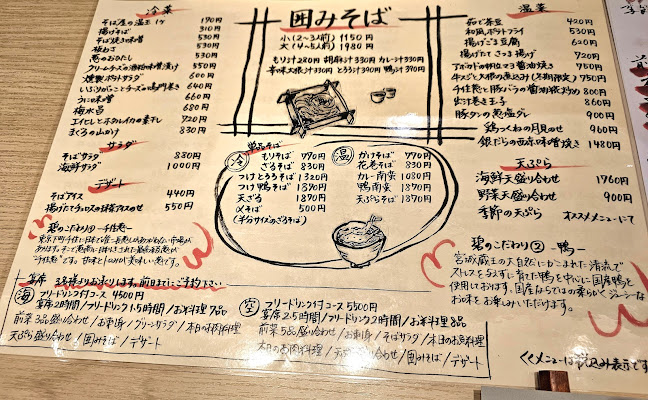 冷菜
そば屋の温玉 1ケ 190円
揚げそば 310円
そば焼き味噌 530円
板わさ 530円
葱のおひたし 530円
クリームチーズの酒粕味噌漬け 550円
燻製ポテトサラダ 600円
いぶりがっことチーズの鳴門巻き 640円
うに味噌 660円
梅水晶 660円
エイヒレとホタルイカの素干し 720円
まぐろのぬか 830円
サラダ
そばサラダ 880円
海鮮サラダ 1000円
デザート
そばアイス 440円
揚げたてチュロスの抹茶アイスのせ 550円
碧のこだわり① ー千住葱ー
囲みそば
小(2〜3人前) 1150円
大(4〜5人前) 1980円
もり汁280円 胡麻汁330円 カレー汁330円
辛味大根汁330円 とろろ汁390円 鴨汁390円
単品そば
冷
もりそば 770円
ざるそば 830円
つけとろろそば 1320円
つけ鴨そば 1390円
天ざる 1870円
〆そば 500円
(半分サイズのざるそば)
温
かけそば 770円
花巻そば 830円
カレー南蛮 1080円
鴨南蛮 1390円
天ぷらそば 1870円
温菜
茹で茶豆 420円
和風ポテトフライ 530円
揚げごま豆腐 620円
揚げたてさつま揚げ 720円
アボカドの郡山マヨ醤油焼き 750円
牛スジと大根の煮込み(冬期限定) 750円
千住葱と豚バラの醤油糀炒め 800円
出汁巻き玉子 860円
豚タンの葱塩ダレ 900円
鶏つくねの月見のせ 960円
銀だらの西京味噌焼き 1480円
天ぷら
海鮮天盛り合わせ 1760円
野菜天盛り合わせ 900円
季節の天ぷら オススメメニューにて
碧のこだわり② ー鴨ー
宮城蔵王の大自然にかこまれた清流で
ストレスを与えずに育てた鴨を中心に国産鴨を
使用しております。国産ならではの柔らかくジューシーな
お味をお楽しみいただけます。
宴席 3名様よりお承りします。前日までにご予約下さい
海 フリードリンク付コース 4500円
宴席2時間/フリードリンク1.5時間/お料理7品
前菜3品盛り合わせ/お刺身/グリーンサラダ/本日の肉料理
天ぷら盛り合わせ/囲みそば/デザート
空 フリードリンク付コース 5500円
宴席2.5時間/フリードリンク2時間/お料理8品
前菜5品盛り合わせ/お刺身/そばサラダ/本日のお魚料理
本日のお肉料理/天ぷら盛り合わせ/囲みそば/デザート
くメニューは税込み表示です